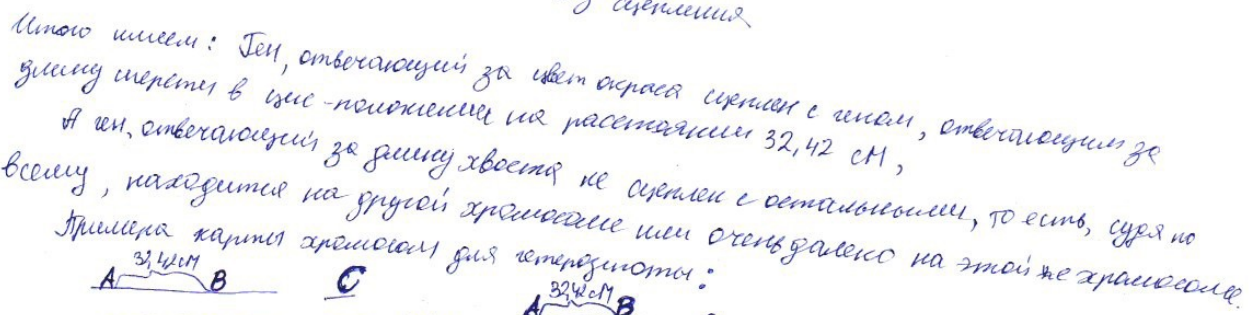 у сцепления
Итого имеем: Ген, отвечающий за цвет окраса сцеплен с геном, отвечающим за
длину шерсти в цис-положении на расстоянии 32,42 сМ,
А ген, отвечающий за длину хвоста не сцеплен с остальными, то есть, судя по
всему, находится на другой хромосоме или очень далеко на этой же хромосоме.
Примера карты хромосом для гетерозиготы:
32,42сМ
A B C
32,42 сМ
A B